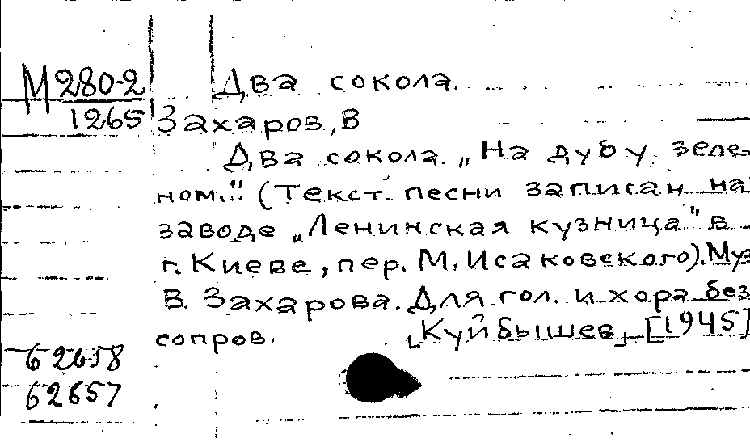 М 280-2 Два сокола.
1265 Захаров, В
Два сокола. „На дубу зеле-
ном." (Текст песни записан на
заводе „Ленинская кузница" в
г. Киеве, пер. М. Исаковского). Муз
В. Захарова. Для гол. и хора без
сопров. [Куйбышев] [1945]
62658
62657